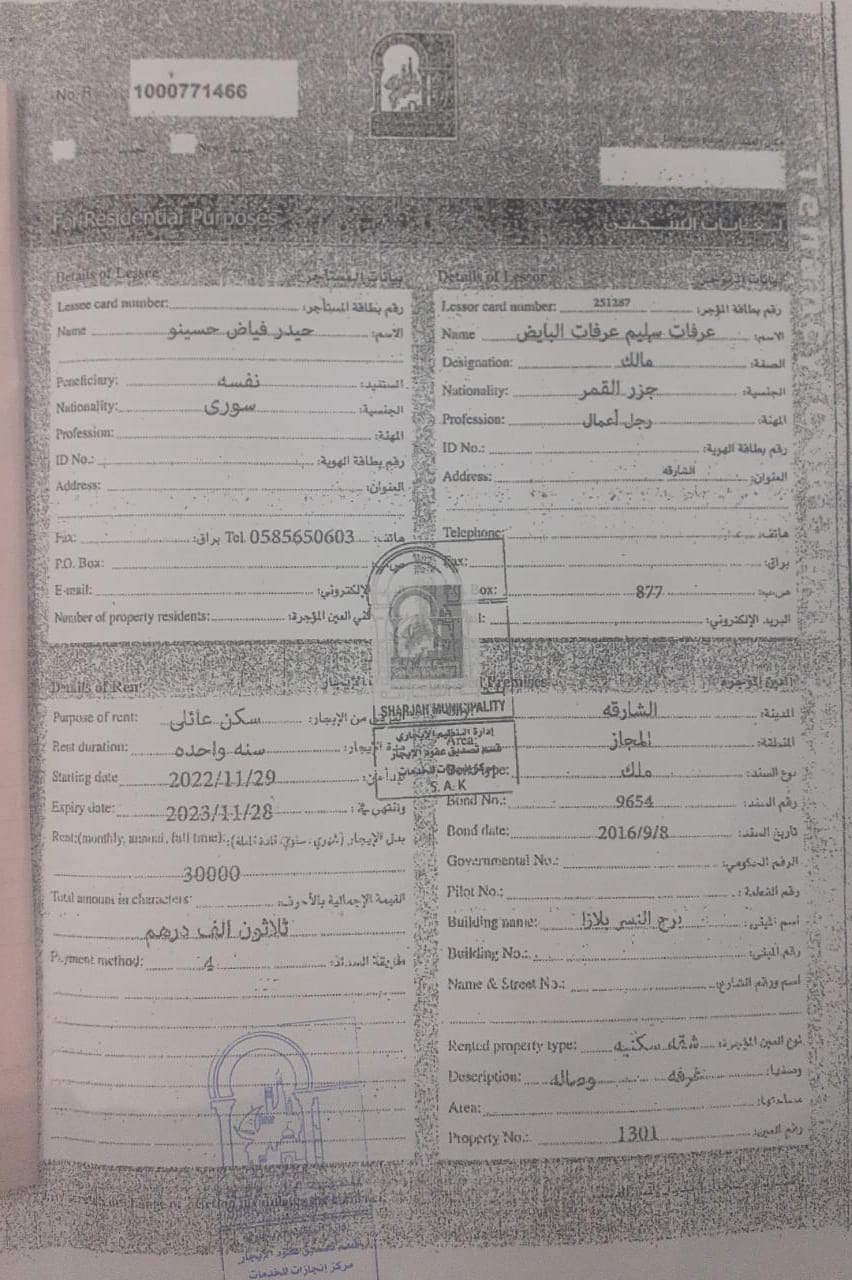 No. R 1000771466
For Residential Purposes
Details of Lessee بيانات المستأجر
Lessee card number: رقم بطاقة المستأجر:
Name حيدر فياض حسينو الاسم:
Beneficiary: نفسه المستفيد:
Nationality: سورى الجنسية:
Profession: المهنة:
ID No.: رقم بطاقة الهوية:
Address: العنوان:
Fax: براق: Tel. 0585650603 هاتف:
P.O. Box:
E-mail:
Number of property residents:
Details of Lessor
Lessor card number: 251287 رقم بطاقة المؤجر:
Name عرفات سليم عرفات البايض الاسم:
Designation: مالك الصفة:
Nationality: جزر القمر الجنسية:
Profession: رجل أعمال المهنة:
ID No.: رقم بطاقة الهوية:
Address: الشارقه العنوان:
Telephone: هاتف:
Fax: براق:
Box: 877
البريد الإلكتروني:
Details of Rent
Purpose of rent: سكن عائلى من الإيجار:
Rent duration: سنه واحده الإيجار:
Starting date 2022/11/29
Expiry date: 2023/11/28 وتنتهي في:
Rent:(monthly, annual, full time):
30000
Total amount in characters: القيمة الإجمالية بالأحرف:
ثلاثون الف درهم
Payment method: 4 طريقة السداد:
Premises العين المؤجرة
الشارقه المدينة:
Area: المجاز المنطقة:
Type: ملك نوع السند:
Bond No.: 9654 رقم السند:
Bond date: 2016/9/8 تاريخ السند:
Governmental No.: الرقم الحكومي:
Pilot No.: رقم القطعة:
Building name: برج النسر بلازا اسم المبنى:
Building No.: رقم المبنى:
Name & Street No.: اسم ورقم الشارع:
Rented property type: شقه سكنيه نوع العين المؤجرة:
Description: غرفه وصاله وصفها:
Area: مساحتها:
Property No.: 1301 رقم العين:
SHARJAH MUNICIPALITY
إدارة التنظيم الإيجاري
قسم تصديق عقود الإيجار
S. A. K
قسم تصديق عقود الإيجار
مركز إنجازات للخدمات